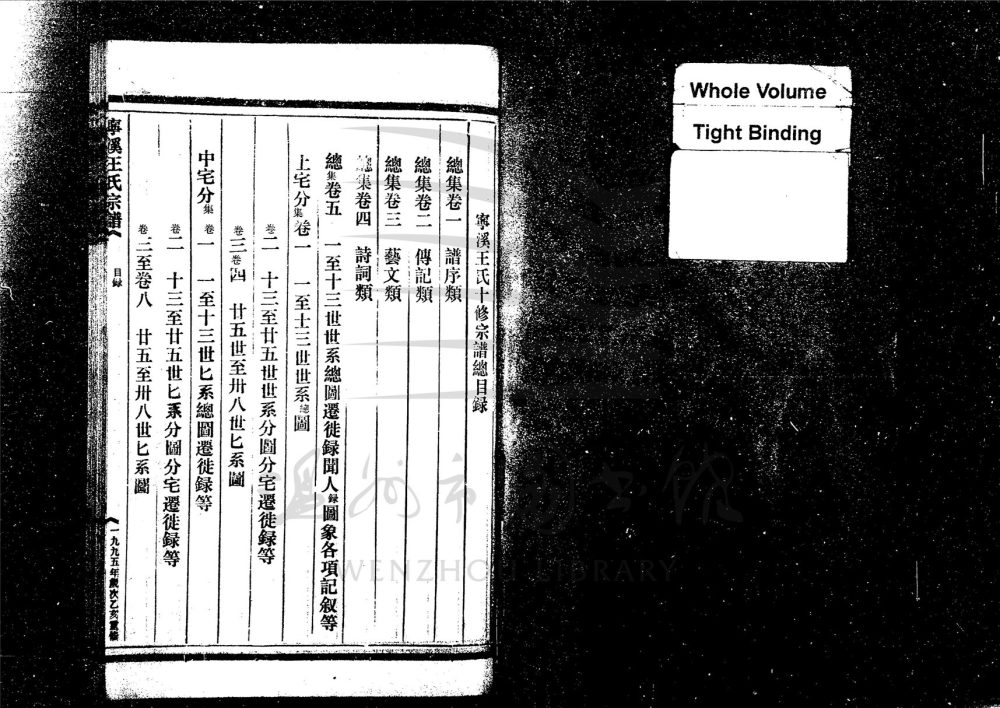 寧溪王氏十修宗譜總目録
總集卷一 譜序類
總集卷二 傳記類
總集卷三 藝文類
總集卷四 詩詞類
總集卷五 一至十三世世系總圖遷徙録聞人録圖象各項記叙等
上宅分集卷一 一至十三世世系總圖
卷二 十三至廿五世世系分圖分宅遷徙録等
卷三卷四 廿五世至卅八世匕系圖
中宅分集 卷一 一至十三世匕系總圖遷徙録等
卷二 十三至廿五世匕系分圖分宅遷徙録等
卷三至卷八 廿五至卅八世匕系圖
寧溪王氏宗譜
目録
一九九五年歲次乙亥重修
Whole Volume
Tight Binding
温州市图书馆
WENZHOU LIBRARY